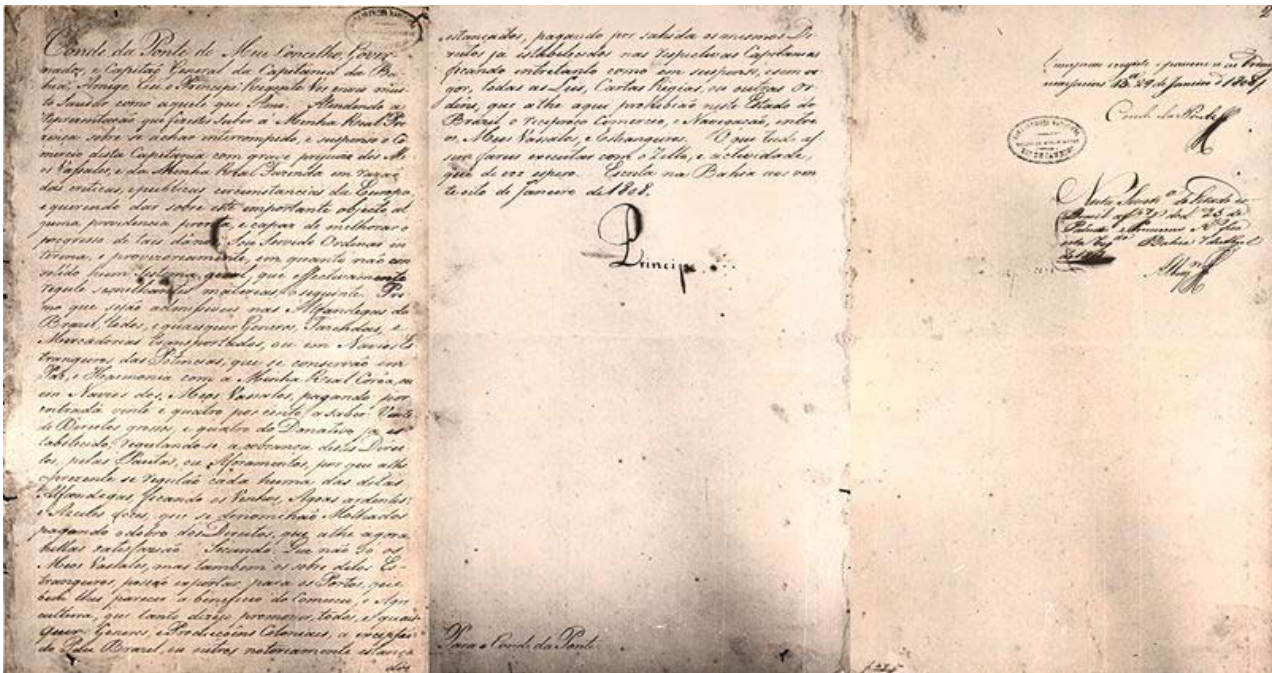 Conde da Ponte do Meu Concelho, Gover-
nador, e Capitaõ General da Capitania da Ba-
hia; Amigo. Eu o Principe Regente vos envio mui-
to Saudar como aquele que Amo. Attendendo a
representaçaõ que fizestes subir a Minha Real Pre-
zença sobre se achar interrompido, e suspenso o Co-
mercio desta Capitania com grave prejuizo dos Me-
os Vassalos, e da Minha Real Fazenda em razaõ
das criticas, e publicas circunstancias da Europa,
e querendo dar sobre este importante objecto al-
guma providencia pronta, e capaz de melhorar o
progresso de taes danos: Sou Servido Ordenar in-
terina, e provizoriamente, em quanto naõ con-
solido hum Systema geral, que effectivamente
regule semelhantes materias, o seguinte. Pri-
mo que sejaõ admissiveis nas Alfandegas do
Brazil, todos, e quaesquer Generos, Fazendas, e
Mercadorias transportados, ou em Navios Es-
trangeiros das Potencias, que se conservaõ em
Paz, e Harmonia com a Minha Real Coroa, ou
em Navios dos Meos Vassalos, pagando por
entrada vinte e quatro por cento; a saber: Vinte
de Direitos grossos, e quatro do Donativo ja es-
tabelecido, regulando-se a cobrança destes Direi-
tos, pelas Pautas, ou Aforamentos, por que athe
o prezente se regulaõ cada huma das ditas
Alfandegas, ficando os Vinhos, Agoas ardentes,
e Azeites doces, que se denominaõ Molhados
pagando o dobro dos Direitos, que athe agora
nellas satisfaziaõ. Secundo: Que naõ só os
Meos Vassalos, mas tambem os sobre ditos Es-
trangeiros, possaõ exportar para os Portos, que
bem lhes parecer a beneficio do Comercio, e Agri-
cultura, que tanto dezejo promover, todos, e quaes-
quer Generos, e Producçoens Coloniaes, a excepçaõ
do Páu Brazil, ou outros notoriamente estanca-
dos
estancados, pagando por sahida os mesmos Di-
reitos já estabelecidos nas respectivas Capitanias
ficando entretanto como em suspenso, e sem vi-
gor, todas as Leis, Cartas Regias, ou outras Or-
dens, que athe aqui prohibiaõ neste Estado do
Brazil o reciproco Comercio, e Navegaçaõ, entre
os Meos Vassalos, e Estrangeiros. O que tudo as-
sim fareis executar com o Zello, e actividade,
que de vos espero. Escrita na Bahia aos vin-
te oito de Janeiro de 1808.
Principe
Para o Conde da Ponte
2
29 de Janeiro de 1808
Conde da Ponte